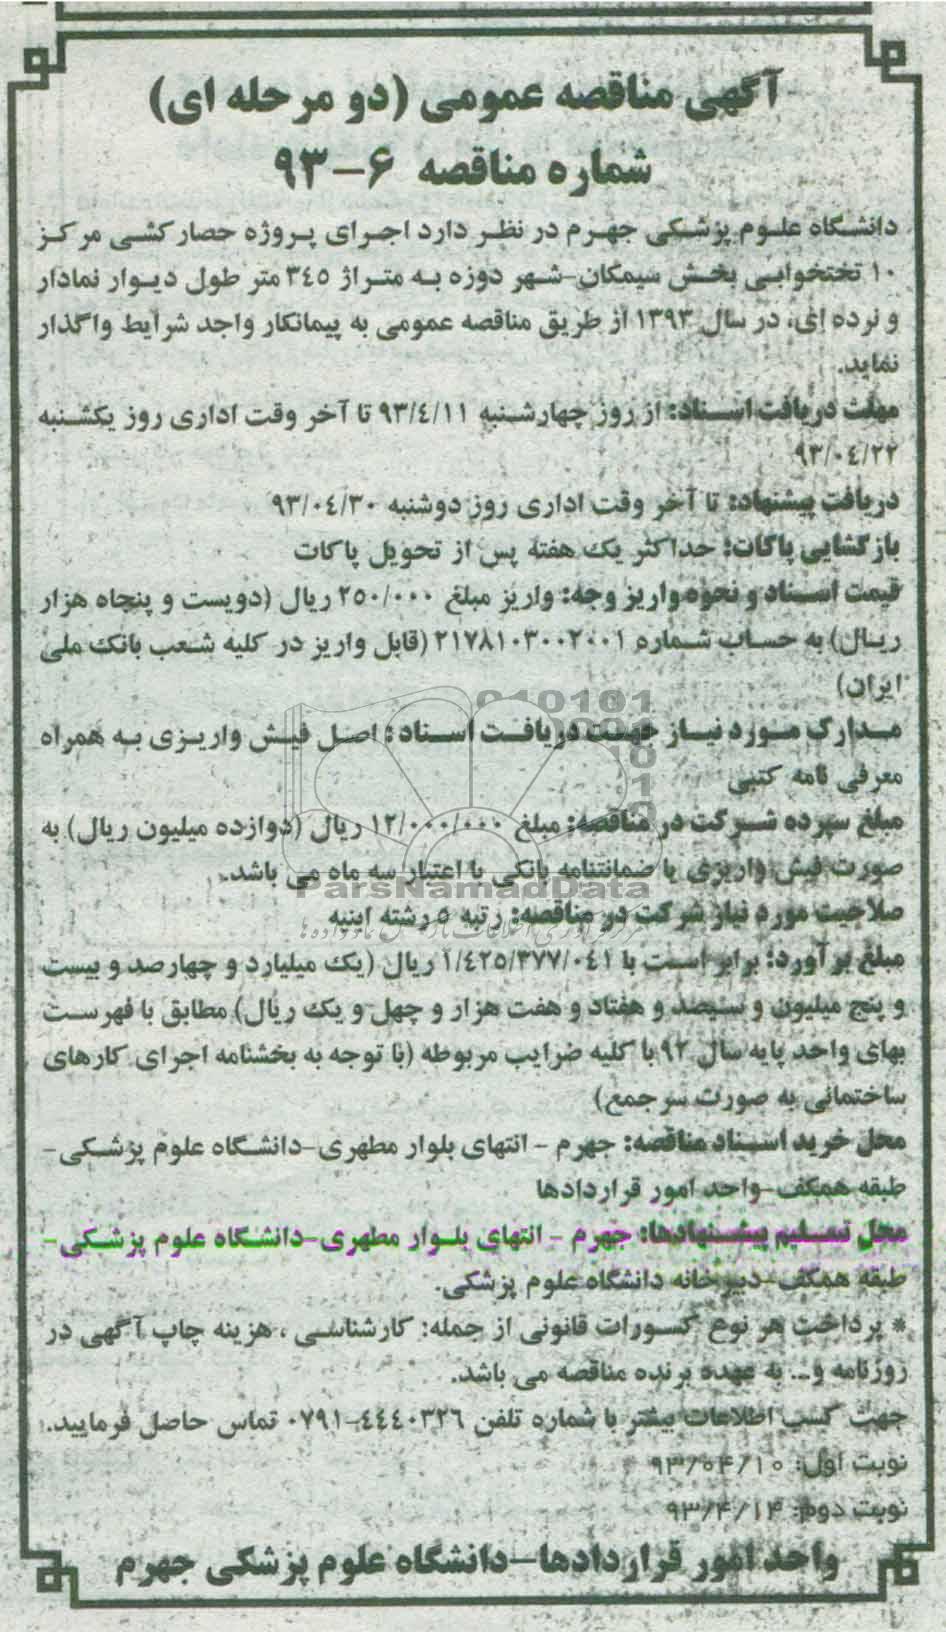 آگهی مناقصه عمومی (دو مرحله ای)
شماره مناقصه ۶-۹۳
دانشگاه علوم پزشکی جهرم در نظر دارد اجرای پروژه حصارکشی مرکز
۱۰ تختخوابی بخش سیمکان-شهر دوزه به متراژ ۳٤٥ متر طول دیوار نمادار
و نرده ای، در سال ۱۳۹۳ از طریق مناقصه عمومی به پیمانکار واجد شرایط واگذار
نماید.
مهلت دریافت اسناد: از روز چهارشنبه ۹۳/٤/۱۱ تا آخر وقت اداری روز یکشنبه
۹۳/۰٤/۲۲
دریافت پیشنهاد: تا آخر وقت اداری روز دوشنبه ۹۳/۰٤/۳۰
بازگشایی پاکات: حداکثر یک هفته پس از تحویل پاکات
قیمت اسناد و نحوه واریز وجه: واریز مبلغ ۲٥۰/۰۰۰ ریال (دویست و پنجاه هزار
ریال) به حساب شماره ۲۱۷۸۱۰۳۰۰۲۰۰۱ (قابل واریز در کلیه شعب بانک ملی
ایران)
مدارک مورد نیاز جهت دریافت اسناد: اصل فیش واریزی به همراه
معرفی نامه کتبی
مبلغ سپرده شرکت در مناقصه: مبلغ ۱۲/۰۰۰/۰۰۰ ریال (دوازده میلیون ریال) به
صورت فیش واریزی یا ضمانتنامه بانکی با اعتبار سه ماه می باشد.
ParsNamadData
صلاحیت مورد نیاز شرکت در مناقصه: رتبه ٥ رشته ابنیه
مبلغ برآورد: برابر است با ۱/٤۲٥/۳۷۷/۰٤۱ ریال (یک میلیارد و چهارصد و بیست
و پنج میلیون و سیصد و هفتاد و هفت هزار و چهل و یک ریال) مطابق با فهرست
بهای واحد پایه سال ۹۲ با کلیه ضرایب مربوطه (با توجه به بخشنامه اجرای کارهای
ساختمانی به صورت سرجمع)
محل خرید اسناد مناقصه: جهرم - انتهای بلوار مطهری-دانشگاه علوم پزشکی-
طبقه همکف-واحد امور قراردادها
محل تسلیم پیشنهادها: جهرم - انتهای بلوار مطهری-دانشگاه علوم پزشکی-
طبقه همکف-دبیرخانه دانشگاه علوم پزشکی.
* پرداخت هر نوع کسورات قانونی از جمله: کارشناسی، هزینه چاپ آگهی در
روزنامه و... به عهده برنده مناقصه می باشد.
جهت کسب اطلاعات بیشتر با شماره تلفن ٤٤٤۰۳۲٦-۰۷۹۱ تماس حاصل فرمایید.
نوبت اول: ۹۳/۰۴/۱۰
نوبت دوم: ۹۳/۴/۱۴
واحد امور قراردادها-دانشگاه علوم پزشکی جهرم